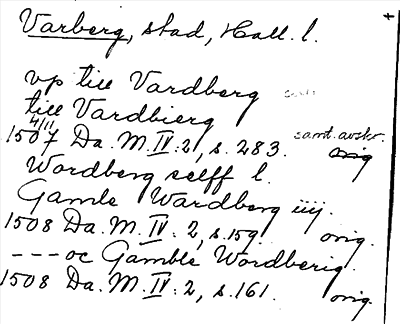 Varberg, stad, Hall. l.
vp till Vardberg
till Vardbierg
4/11
1507 Da. M. IV: 2, s. 283. samt. avskr. orig
Wordberg selff l.
Gamle Wardberg iiij.
1508 Da. M. IV: 2, s. 159. orig.
---oc Gamble Wordberig.
1508 Da. M. IV: 2, s. 161. orig.